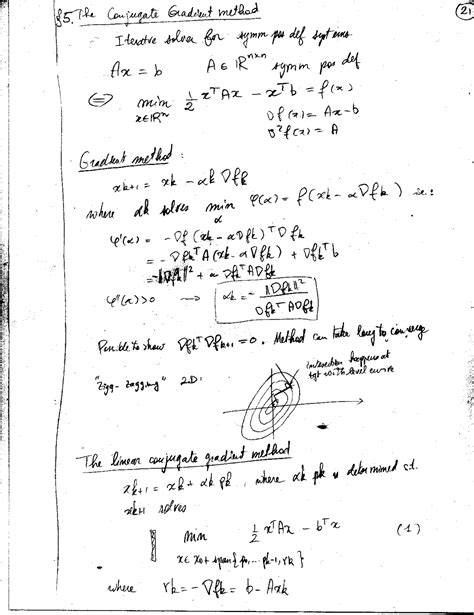 §5. The Conjugate Gradient method
(21)
Iterative solver for symm pos def syst eins
Ax = b    A ∈ ℝⁿˣⁿ symm pos def
⇔ min ½ xᵀAx − xᵀb = f(x)
x∈ℝⁿ
∇f(x) = Ax−b
∇²f(x) = A
Gradient method:
xk+1 = xk − αk ∇fk
where αk solves min φ(α) = f(xk − α∇fk) i.e.:
α
φ'(α) = −∇f(xk − α∇fk)ᵀ∇fk
= −∇fkᵀA(xk−α∇fk) + ∇fkᵀb
= −‖∇fk‖² + α∇fkᵀA∇fk
φ''(α)>0 → αk = − ‖∇fk‖² / ∇fkᵀA∇fk
Possible to show ∇fkᵀ∇fk+1 = 0. Method can take long to converge
"Zigg-zagging" 2D:
intersection happens at
tgt with level curve
The linear conjugate gradient method
xk+1 = xk + αk pk, where αk pk is determined s.t.
xk+1 solves
min ½ xᵀAx − bᵀx (1)
x ∈ x0 + span{p0,... pk-1, rk}
where rk = −∇fk = b − Axk